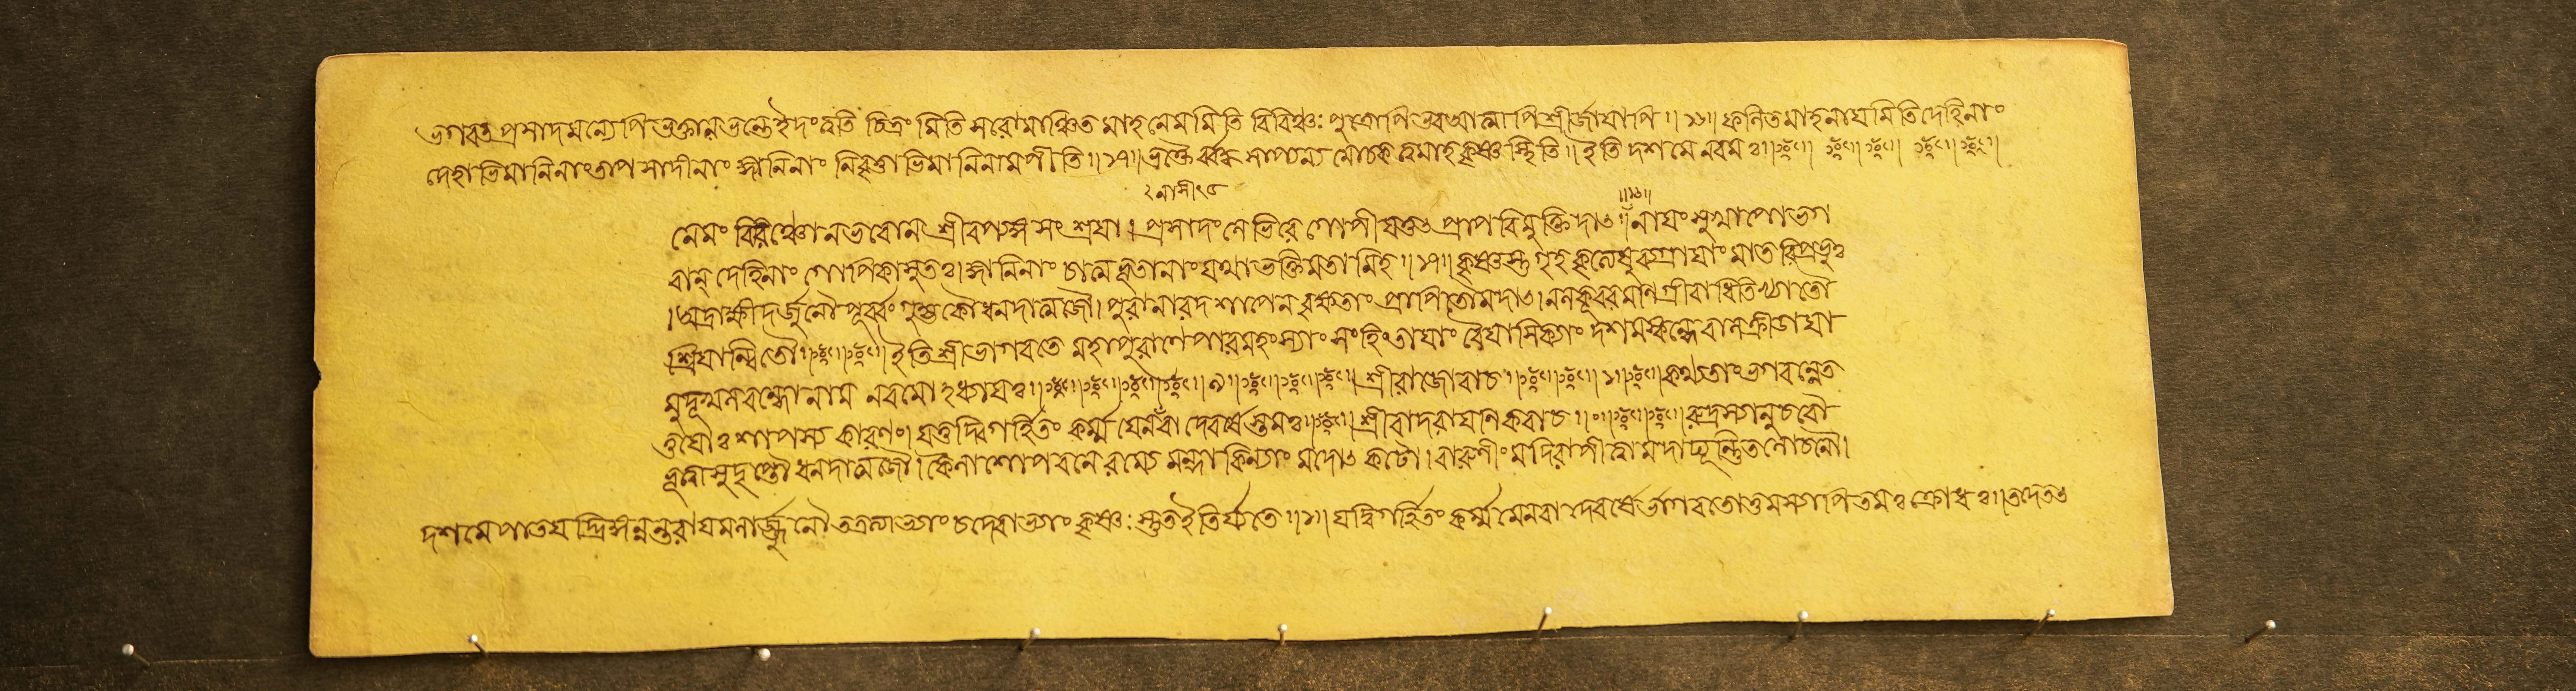 ভগবত্প্রসাদমন্যেপিভক্তালভন্তেইদংত্বতি চিত্রং মিতি সরোমাঞ্চিত মাহ নেমমিতি বিরিঞ্চঃ পুত্রোপি ভবআত্মাপি শ্রীর্জাযাপি ।।১৬।। ফলিতমাহনাযমিতিদেহিনাং
দেহাভিমানিনাংতাপসাদীনাং জ্ঞানিনাং নিবৃত্তাভিমানিনামপীতি ।।১৭।। কৃষ্ণস্ত্বিতি ।। ইতি দশমে নবমঃ ।।
২নাসীৎ ।।১৬।।
নেমং বিরিঞ্চোনভবোন শ্রীরপ্যঙ্গসংশ্রযা । প্রসাদংলেভিরে গোপীযত্তৎপ্রাপবিমুক্তিদাৎ ।। নাযংসুখাপোভগ
বান্ দেহিনাং গোপিকাসুতঃ। জ্ঞানিনাং চাত্মভূতানাংযথাভক্তিমতামিহ ।।১৭।। কৃষ্ণস্তুগৃহকৃত্যেষুব্যগ্রাযাং মাতরিপ্রভুঃ
। অদ্রাক্ষীদর্জুনৌপূর্ব্বংগুহ্যকৌধনদাত্মজৌ। পুরানারদশাপেন বৃক্ষতাং প্রাপিতৌমদাৎ। নলকূবরমণিগ্রীবাবিতিখ্যাতৌ
শ্রিযান্বিতৌ ।। ইতি শ্রীভাগবতে মহাপুরাণেপারমহংস্যাং সংহিংতাযাং বৈযাসিক্যাং দশমস্কন্ধেবালক্রীডাযা
মুদূখলবন্ধোনাম নবমোঽধ্যাযঃ ।। ৯ ।। শ্রীরাজোবাচ ।। ১। কথ্যতাংভগবন্নেত
ত্তযোঃ শাপস্য কারণং। যত্তদ্বিগর্হিতং কর্ম্ম যেনবা দেবর্ষেস্তমঃ ।। শ্রীবাদরাযণিরুবাচ ।। রুদ্রস্যানুচরৌ
ভূত্বাসুদৃপ্তৌধনদাত্মজৌ। কৈলাশোপবনেরম্যে মন্দাকিন্যাং মদোৎকটৌ। বারুণীংমদিরাপীত্বামদাঘূর্ন্নিতলোচনৌ।
দশমেপাতযদ্রিঙ্গন্নন্তরাযমলার্জ্জুনৌ তত্রত্যাভ্যাং চদেবাভ্যাং কৃষ্ণঃ স্তুতইতির্য্যতে ।।১।। যদ্বিগর্হিতং কর্ম্মযেনবা দেবর্ষের্ভাগবতোত্তমস্যাপিতমঃ ক্রোধঃ ।। তদেতৎ